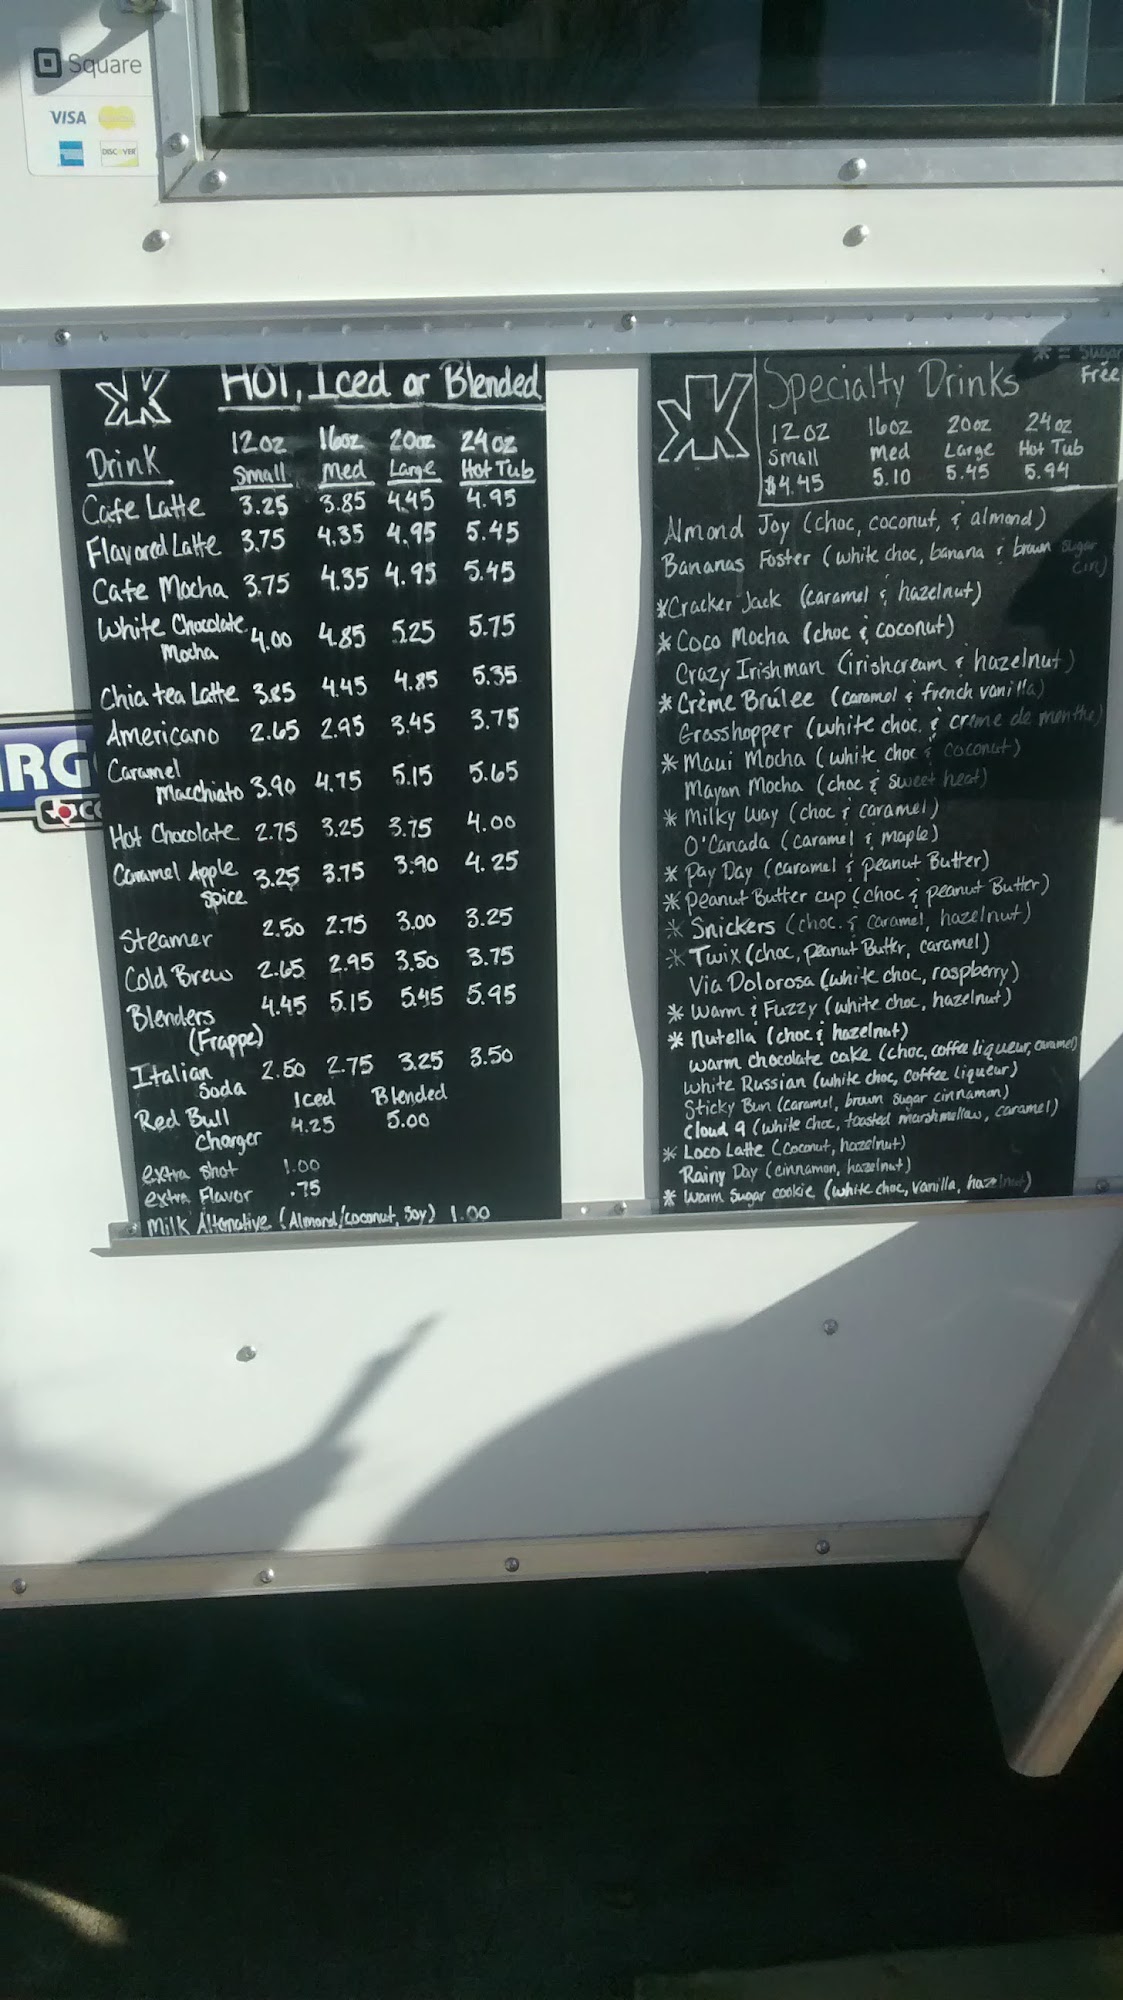 Square
VISA
DISCOVER
HOT, Iced or Blended
Drink
12oz 16oz 20oz 24oz
Small med Large Hot Tub
Cafe Latte 3.25 3.85 4.45 4.95
Flavored Latte 3.75 4.35 4.95 5.45
Cafe Mocha 3.75 4.35 4.95 5.45
White Chocolate
Mocha 4.00 4.85 5.25 5.75
Chia tea Latte 3.85 4.45 4.85 5.35
Americano 2.65 2.95 3.45 3.75
Caramel
Macchiato 3.90 4.75 5.15 5.65
Hot Chocolate 2.75 3.25 3.75 4.00
Caramel Apple
Spice 3.25 3.75 3.90 4.25
Steamer 2.50 2.75 3.00 3.25
Cold Brew 2.65 2.95 3.50 3.75
Blenders 4.45 5.15 5.45 5.95
(Frappe)
Italian
Soda 2.50 2.75 3.25 3.50
Iced Blended
Red Bull
Charger 4.25 5.00
extra shot 1.00
extra Flavor .75
Milk Alternative (Almond/Coconut, Soy) 1.00
* = Sugar
Free
Specialty Drinks
12oz 16oz 20oz 24oz
Small med Large Hot Tub
$4.45 5.10 5.45 5.94
Almond Joy (choc, coconut, & almond)
Bananas Foster (white choc, banana & brown sugar
cin)
*Cracker Jack (caramel & hazelnut)
*Coco Mocha (choc & coconut)
Crazy Irishman (irishcream & hazelnut)
*Crème Brûlee (caramel & french vanilla)
Grasshopper (white choc. & creme de menthe)
*Maui Mocha (white choc & coconut)
Mayan Mocha (choc & sweet heat)
*Milky Way (choc & caramel)
O'Canada (caramel & maple)
*Pay Day (caramel & peanut Butter)
*Peanut Butter cup (choc & peanut Butter)
*Snickers (choc. & caramel, hazelnut)
*Twix (choc, peanut Butter, caramel)
Via Dolorosa (white choc, raspberry)
*Warm & Fuzzy (white choc, hazelnut)
*Nutella (choc & hazelnut)
warm chocolate cake (choc, coffee liqueur, caramel)
White Russian (white choc, coffee liqueur)
Sticky Bun (caramel, brown sugar cinnamon)
Cloud 9 (white choc, toasted marshmellow, caramel)
*Loco Latte (coconut, hazelnut)
Rainy Day (cinnamon, hazelnut)
*Warm Sugar cookie (white choc, vanilla, hazelnut)